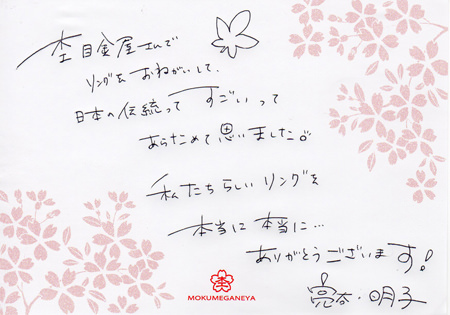 杢目金屋さんで
リングを おねがいして、
日本の伝統って すごいって
あらためて思いました。
私たちらしい リングを
本当に 本当に…
ありがとうございます!
亮介・明子
MOKUMEGANEYA